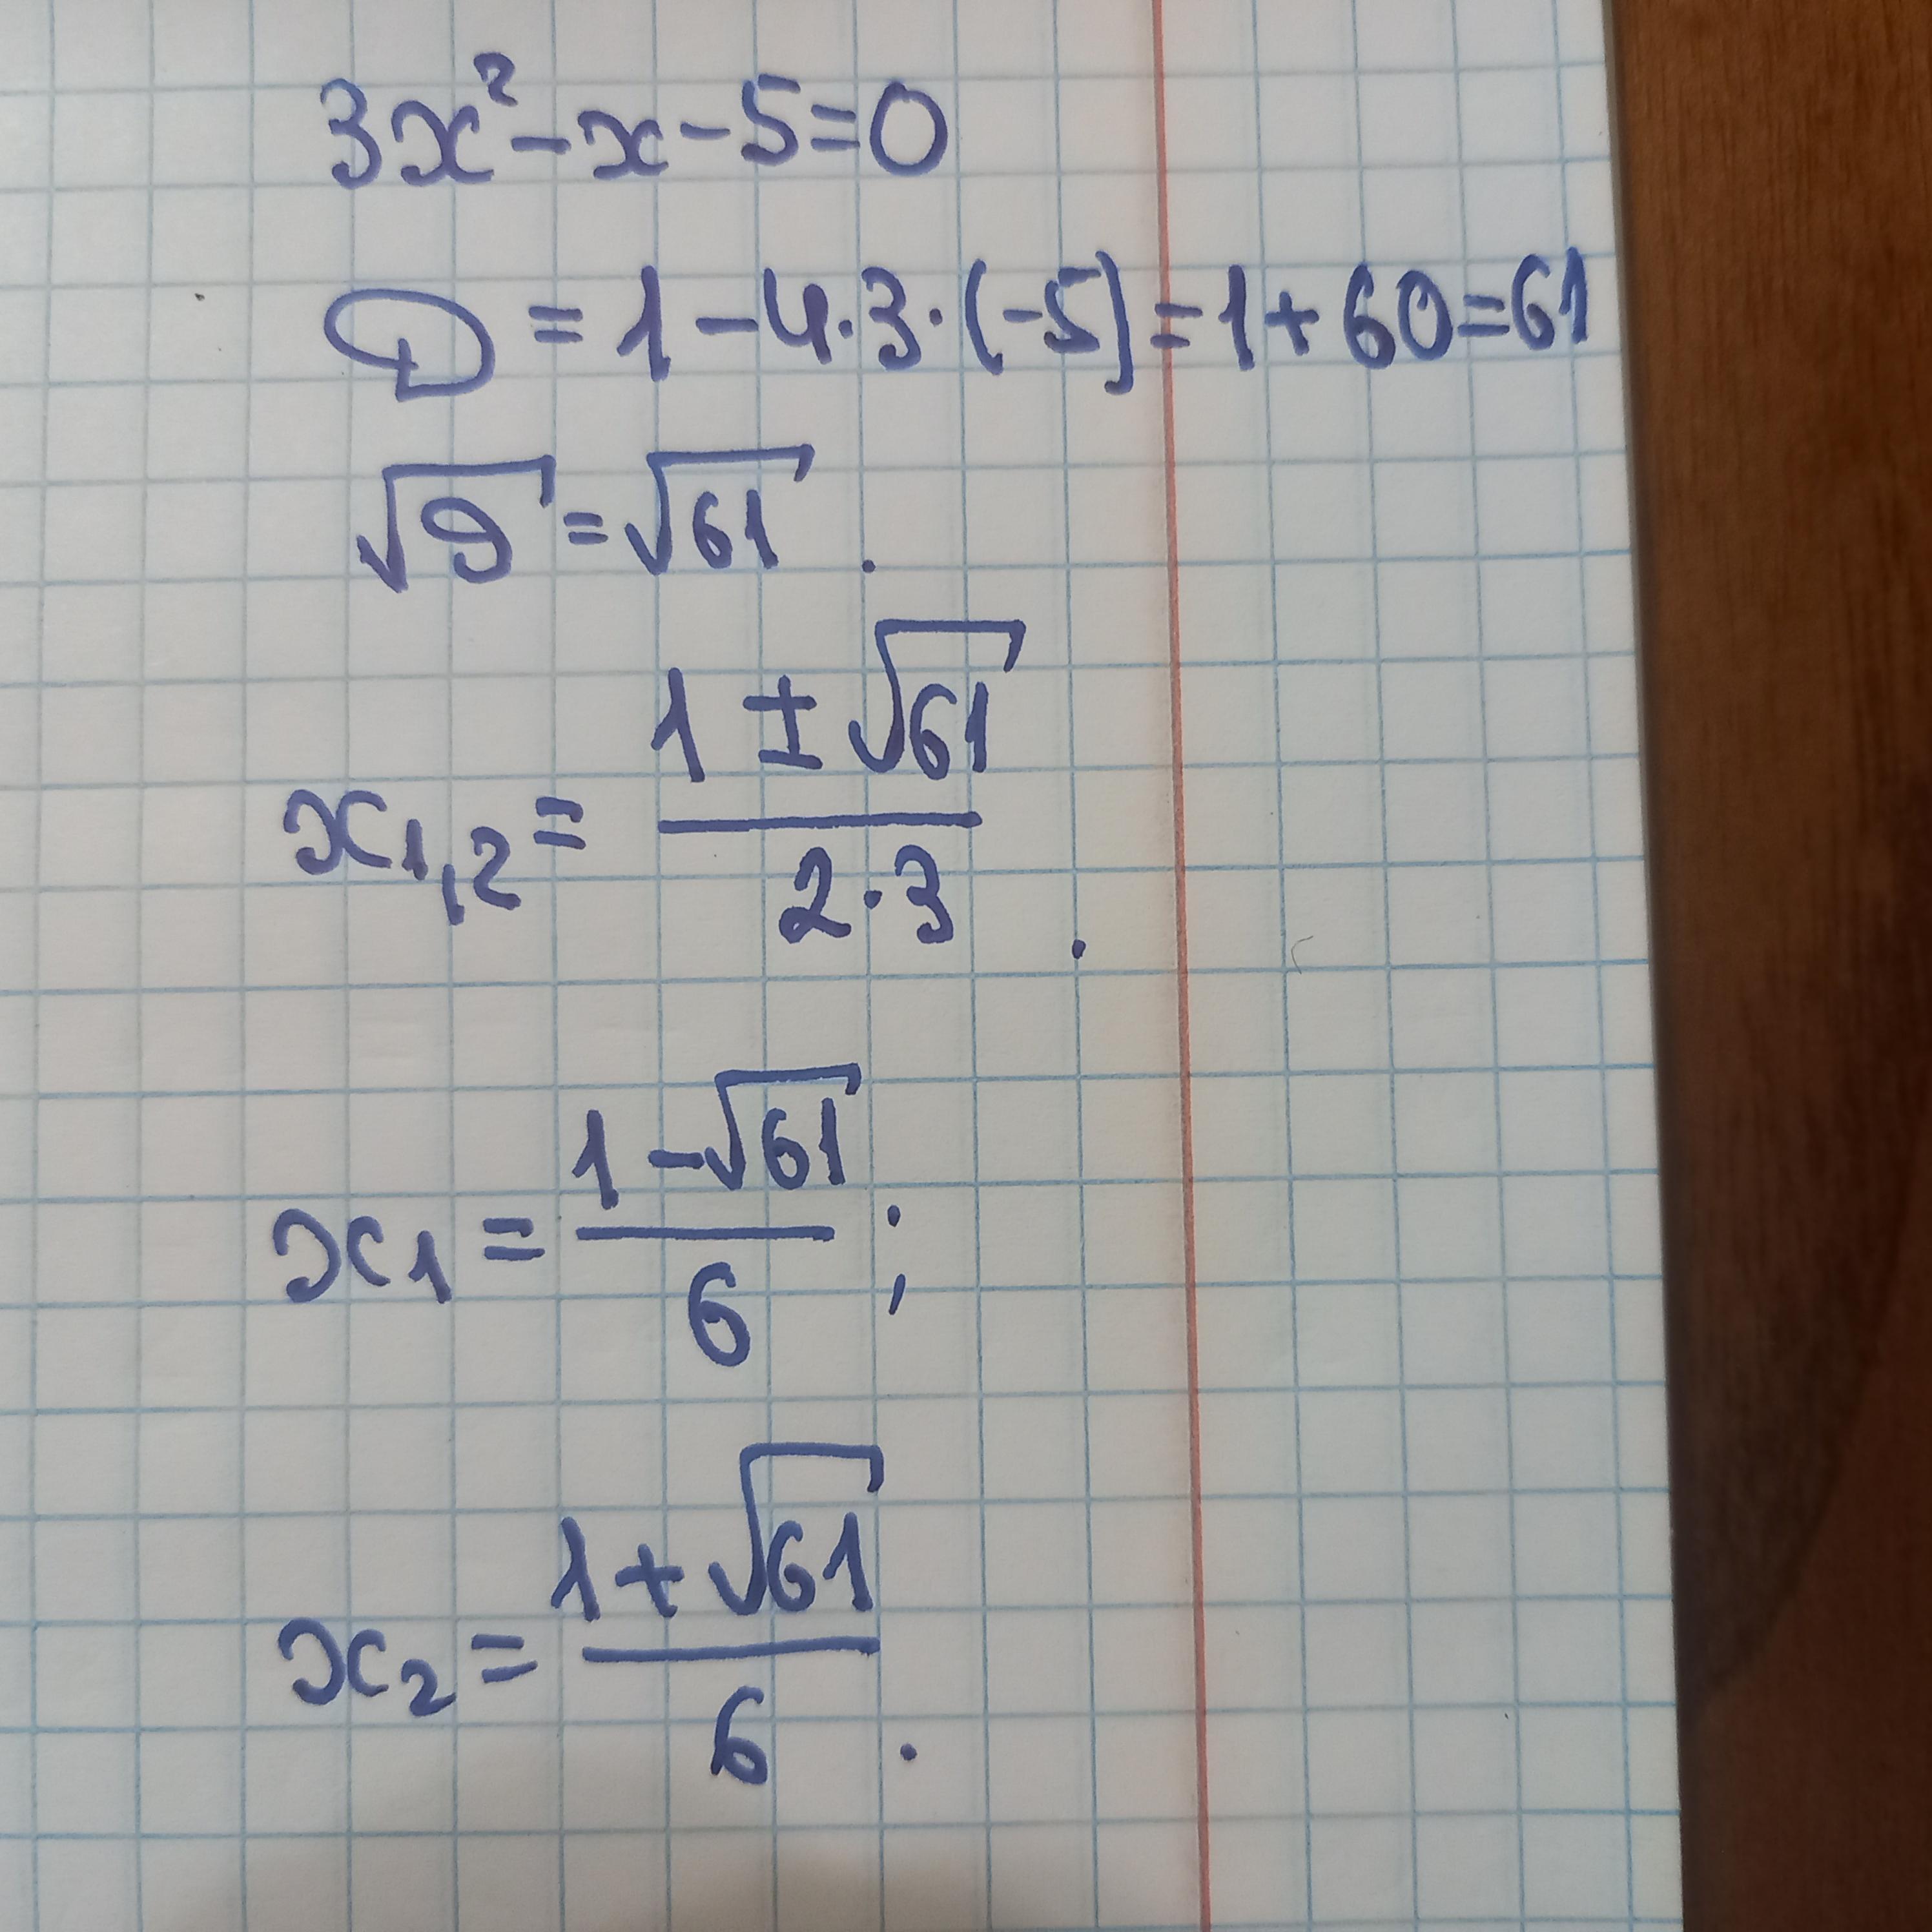 3x² - x - 5 = 0
D = 1 - 4·3·(-5) = 1 + 60 = 61
√D = √61 .
x₁,₂ = (1 ± √61)/(2·3) .
x₁ = (1 - √61)/6 ;
x₂ = (1 + √61)/6 .